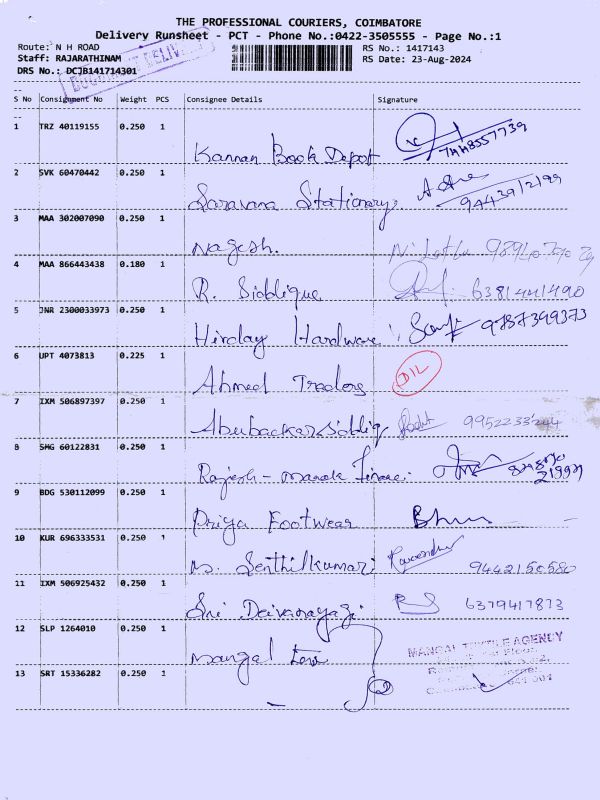 THE PROFESSIONAL COURIERS, COIMBATORE
Delivery Runsheet - PCT - Phone No.:0422-3505555 - Page No.:1
Route: N H ROAD RS No.: 1417143
Staff: RAJARATHINAM RS Date: 23-Aug-2024
DRS No.: DCJB141714301
S No Consignment No Weight PCS Consignee Details Signature
1 TRZ 40119155 0.250 1
Kannan Book Depot
2 SVK 60470442 0.250 1
Saravana Stationary
3 MAA 302007090 0.250 1
Nagesh.
4 MAA 866443438 0.180 1
R. Siddique 6381441490
5 JNR 2300033973 0.250 1
Hirday Hardware 9787399373
6 UPT 4073813 0.225 1
Ahmed Traders DIL
7 IXM 506897397 0.250 1
Abubackar siddiq 9952233244
8 SMG 60122831 0.250 1
Rajesh - 
9 BDG 530112099 0.250 1
Priya Footwear
10 KUR 696333531 0.250 1
M. Senthilkumar 9442150580
11 IXM 506925432 0.250 1
Sri Deivanayagi 6379417873
12 SLP 1264010 0.250 1
Mangal Tex
MANGAL TEXTILE AGENCY
13 SRT 15336282 0.250 1